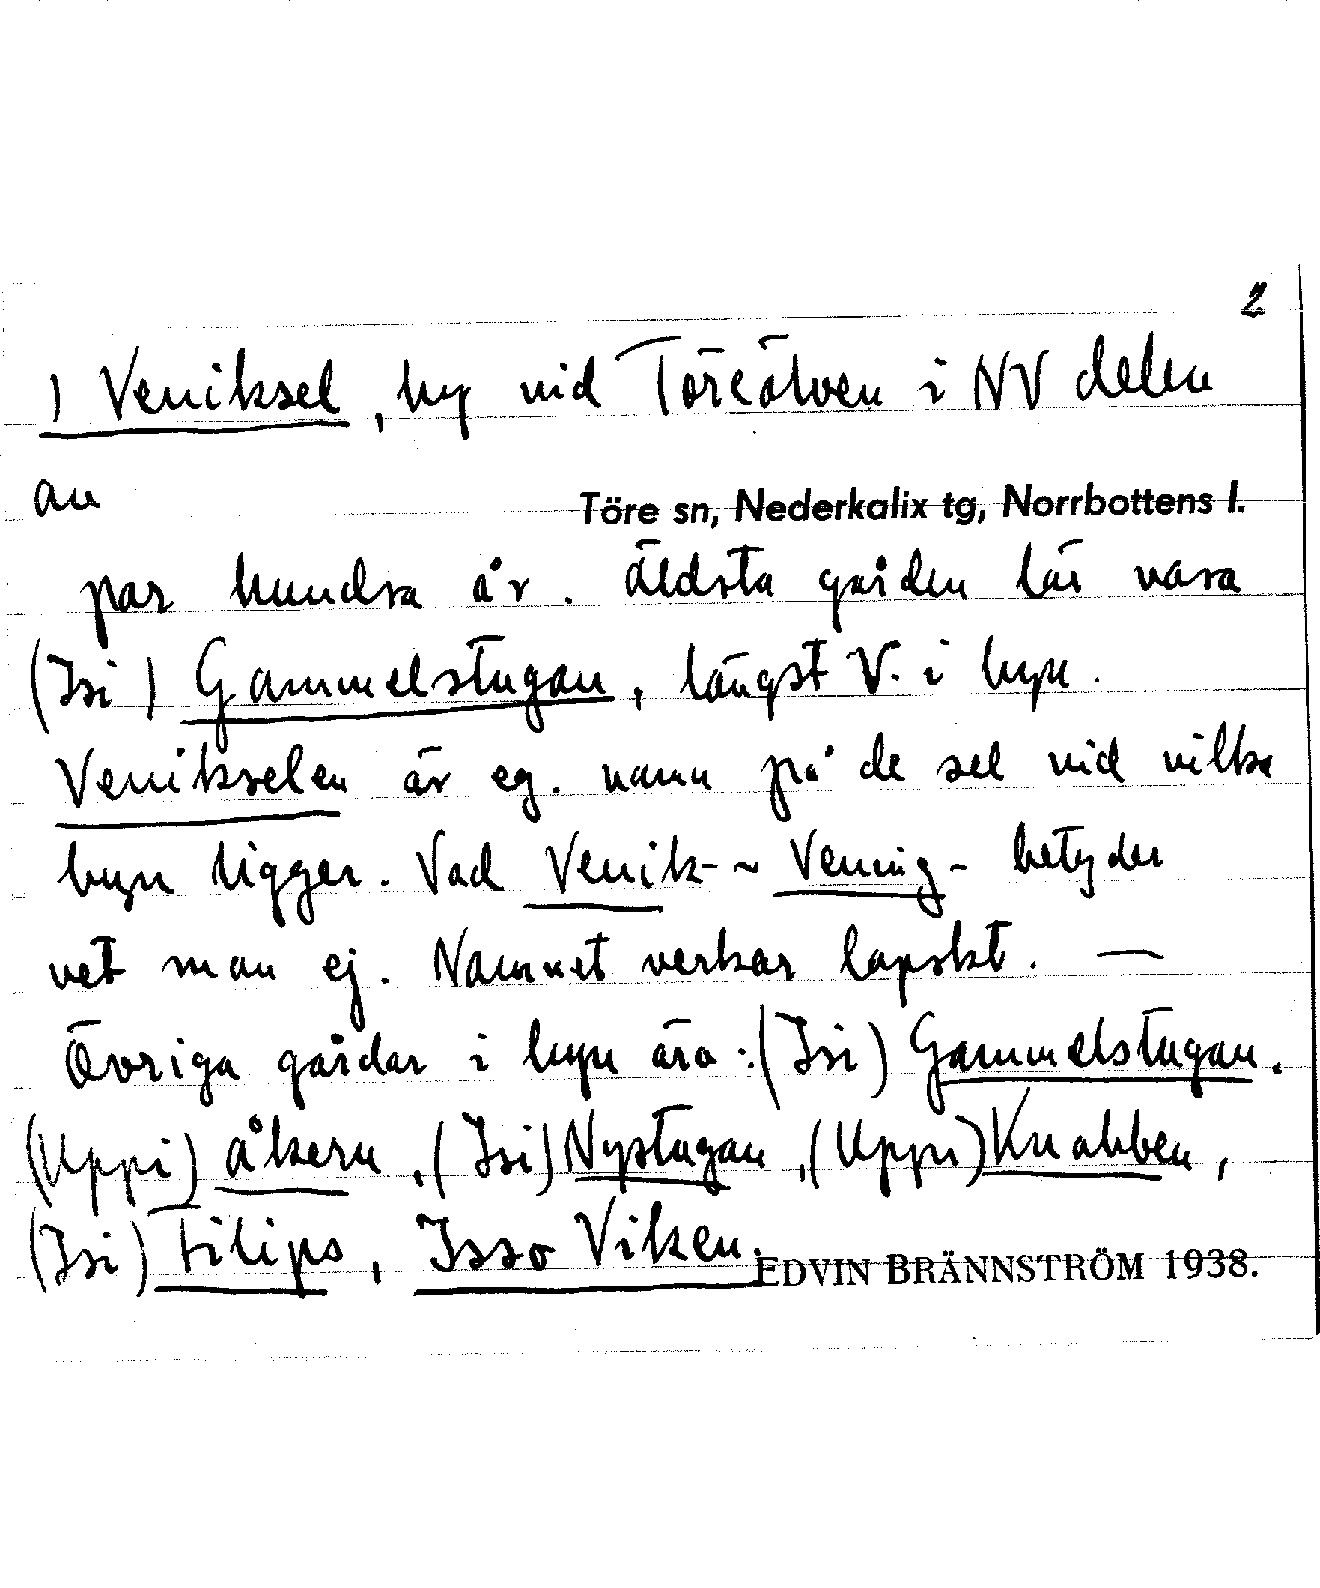 2
) Veniksel, by vid Töreälven i NV delen
av Töre sn, Nederkalix tg, Norrbottens l.
par hundra år. Äldsta gården lär vara
(Isi) Gammelstugan, längst V. i byn.
Venikselen är eg. namn på de sel vid vilka
byn ligger. Vad Venik- ~ Vening- betyder
vet man ej. Namnet verkar lapskt. —
Övriga gårdar i byn äro: (Isi) Gammelstugan.
(Uppi) Åkern, (Isi) Nystugan, (Uppi) Knabben,
(Isi) Filips, Isso Viken.
EDVIN BRÄNNSTRÖM 1938.